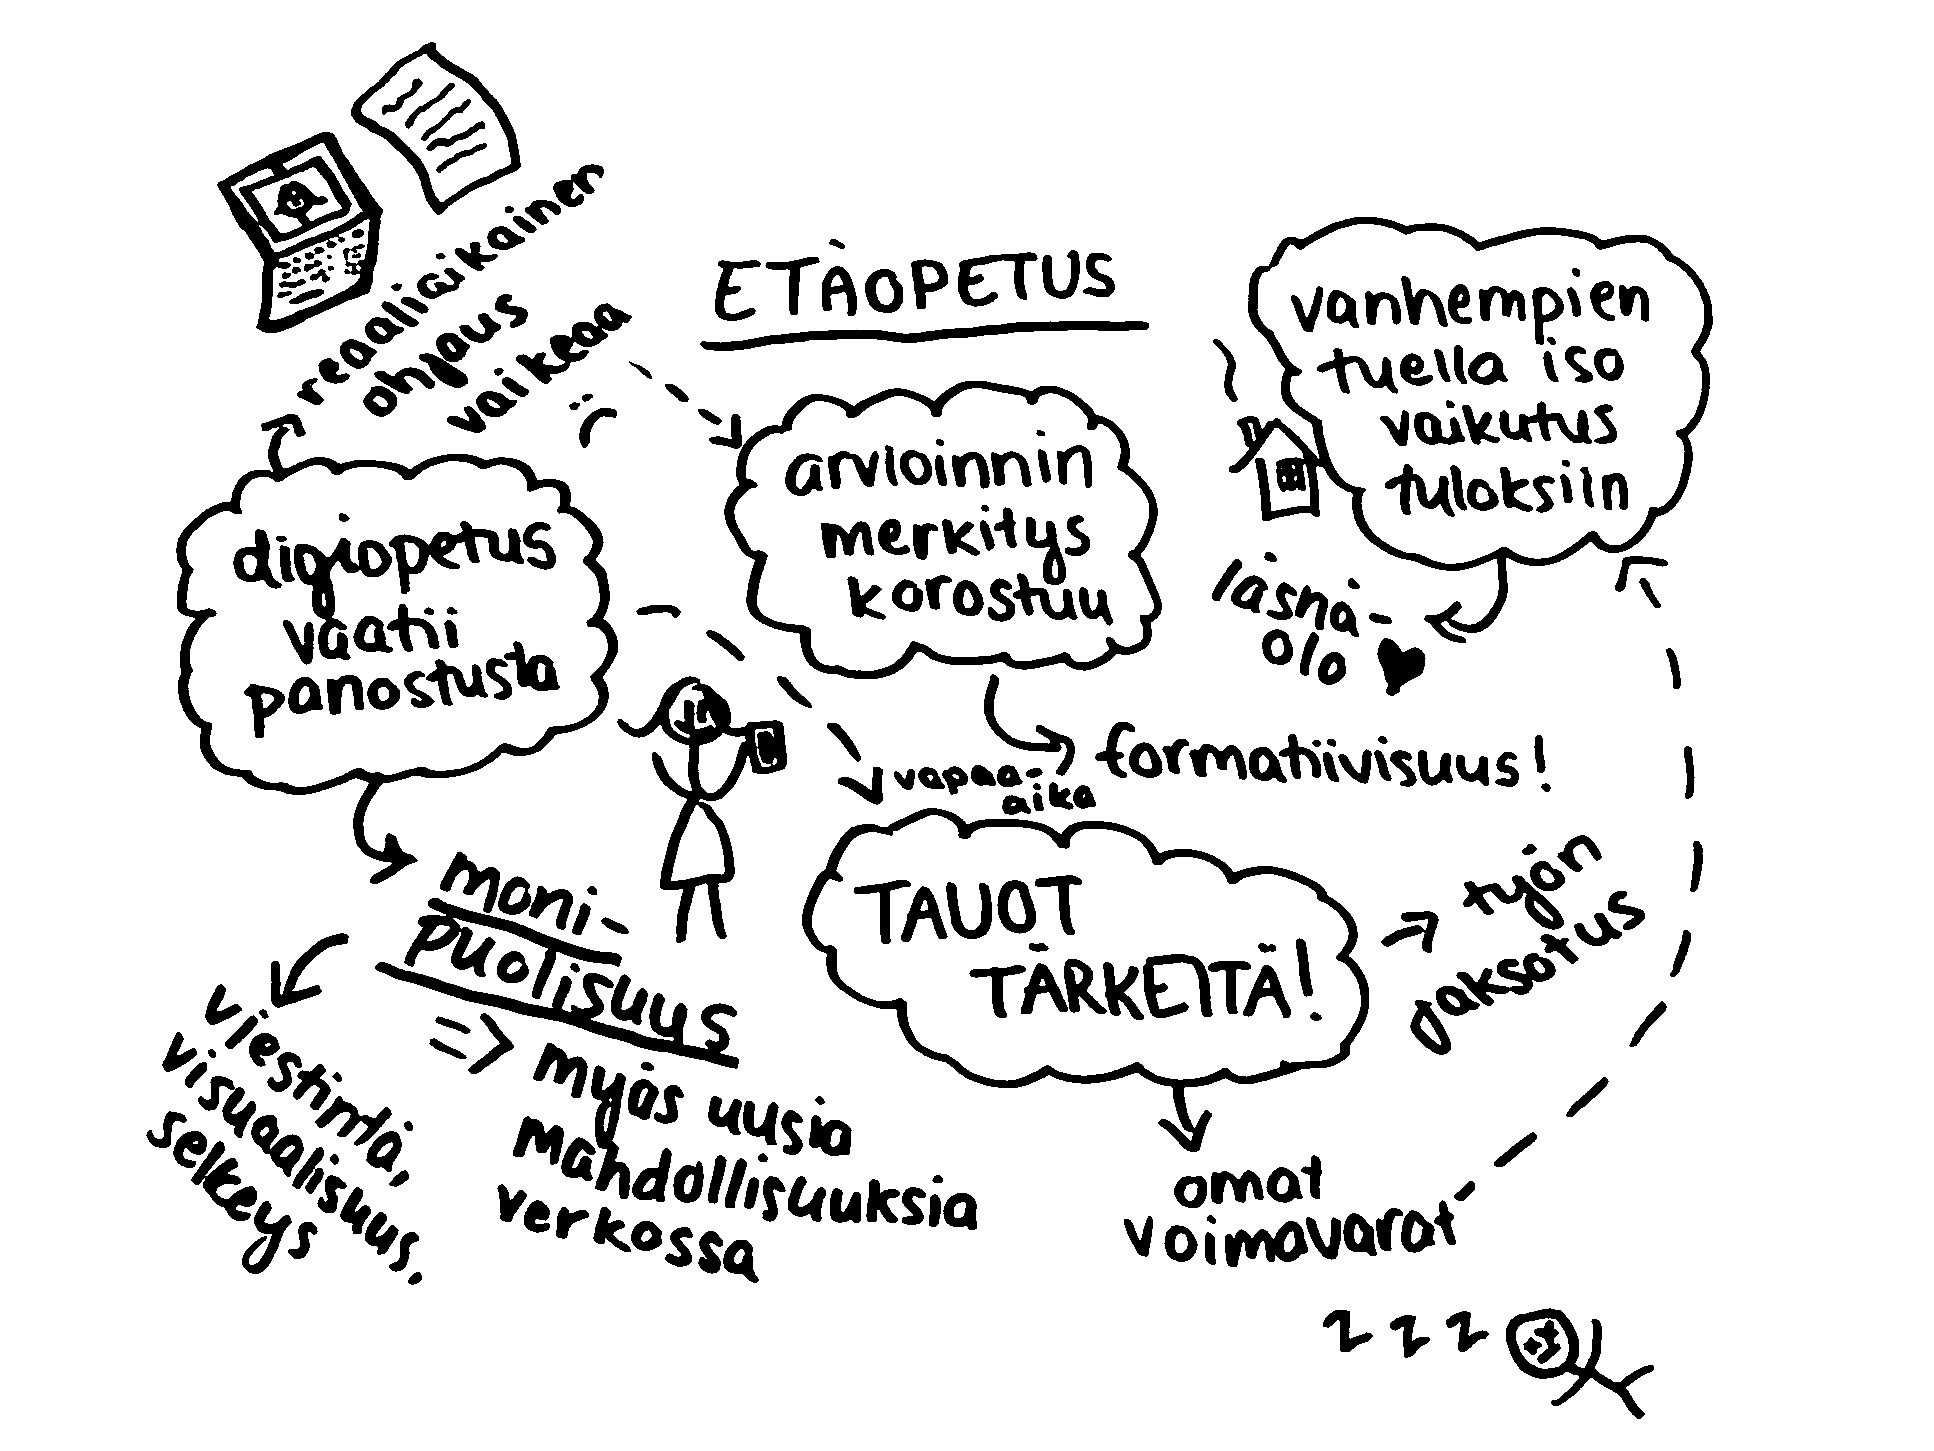 ETÄOPETUS
reaaliaikainen
ohjaus
vaikeaa
digiopetus
vaatii
panostusta
moni-
puolisuus
viestintä,
visuaalisuus.
selkeys
=> myös uusia
mahdollisuuksia
verkossa
arvioinnin
merkitys
korostuu
formatiivisuus!
vanhempien
tuella iso
vaikutus
tuloksiin
läsnä-
olo
vapaa-
aika
TAUOT
TÄRKEITÄ!
työn
jaksotus
omat
voimavarat
z z z